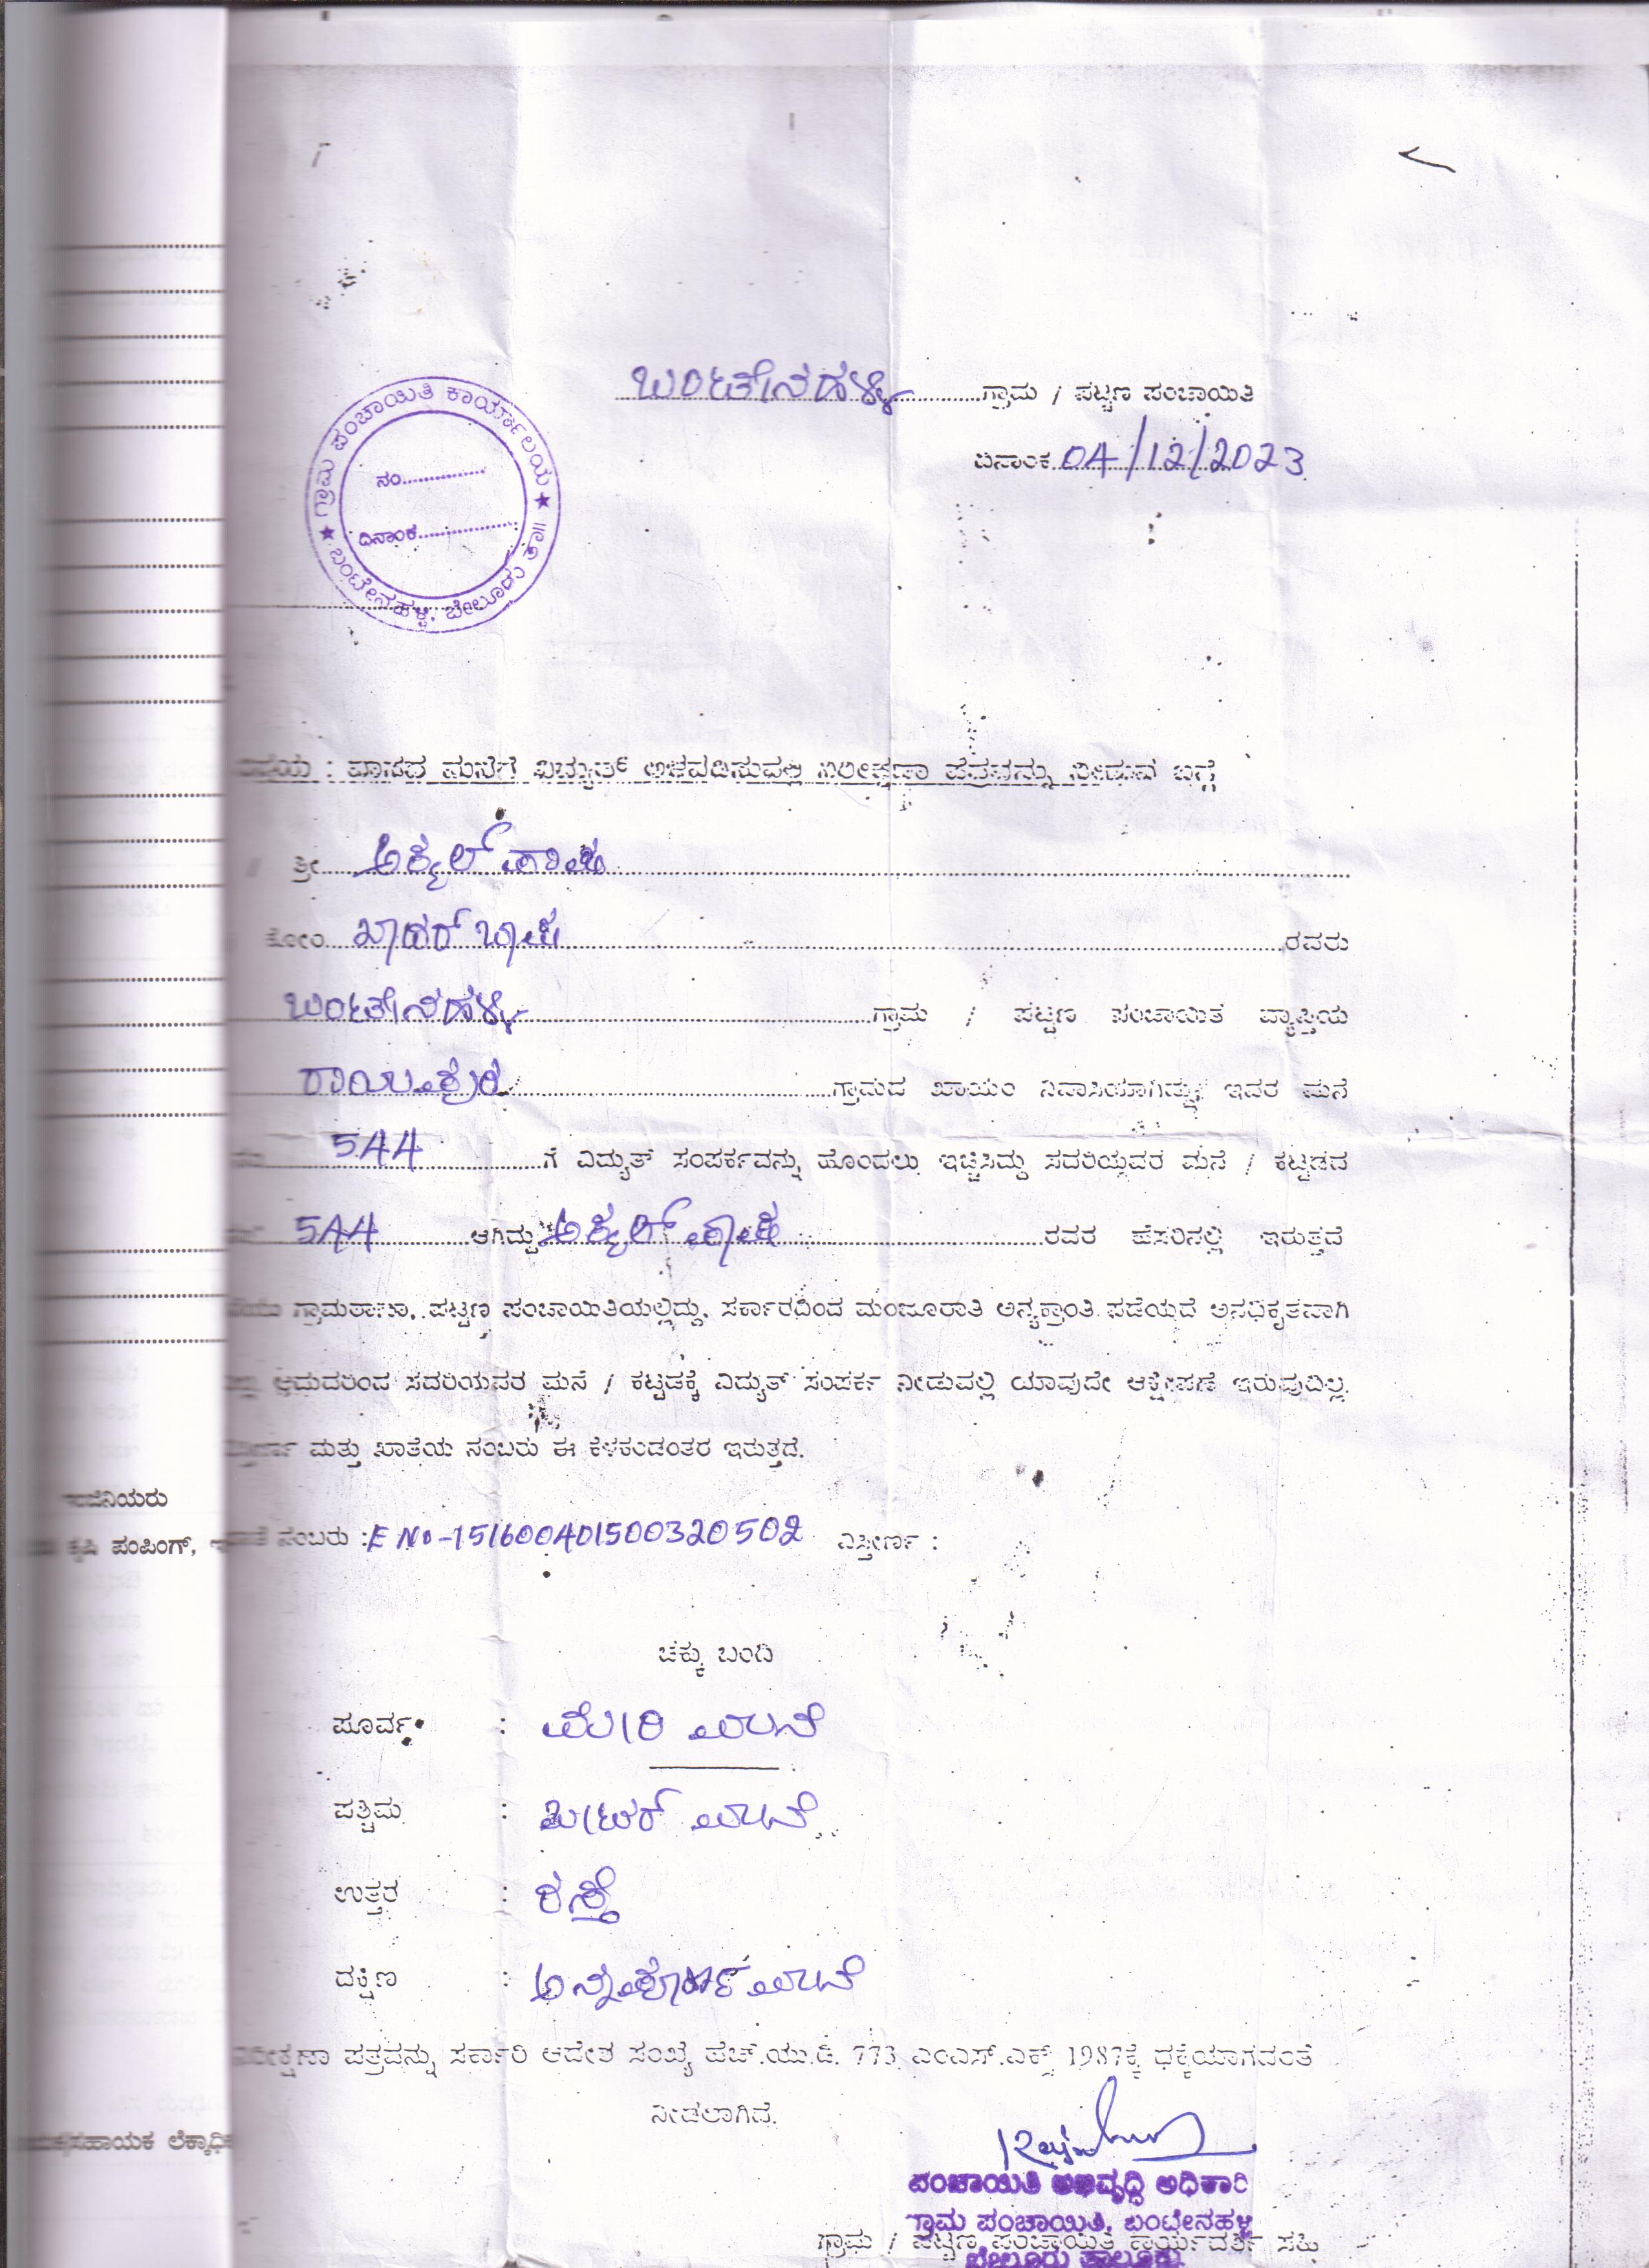 ಬಂಟೇನಹಳ್ಳಿ ಗ್ರಾಮ / ಪಟ್ಟಣ ಪಂಚಾಯಿತಿ
ದಿನಾಂಕ 04/12/2023
ಗ್ರಾಮ ಪಂಚಾಯಿತಿ ಕಾರ್ಯಾಲಯ
ನಂ
ದಿನಾಂಕ
ಬಂಟೇನಹಳ್ಳಿ, ಬೇಲೂರು ತಾ||
ವಿಷಯ : ವಾಸದ ಮನೆಗೆ ವಿದ್ಯುತ್ ಅಳವಡಿಸುವಲ್ಲಿ ನಿರೀಕ್ಷಣಾ ಪತ್ರವನ್ನು ನೀಡುವ ಬಗ್ಗೆ
ಶ್ರೀ ಅಕ್ಮಲ್ ಪಾಷ
ಕೋಂ ಖಾದರ್ ಬಾಷ ರವರು
ಬಂಟೇನಹಳ್ಳಿ ಗ್ರಾಮ / ಪಟ್ಟಣ ಪಂಚಾಯಿತಿ ವ್ಯಾಪ್ತಿಯ
ರಾಯಪುರ ಗ್ರಾಮದ ಖಾಯಂ ನಿವಾಸಿಯಾಗಿದ್ದು, ಇವರ ಮನೆ
544 ಗೆ ವಿದ್ಯುತ್ ಸಂಪರ್ಕವನ್ನು ಹೊಂದಲು ಇಚ್ಚಿಸಿದ್ದು ಸದರಿಯವರ ಮನೆ / ಕಟ್ಟಡದ
544 ಆಗಿದ್ದು ಅಕ್ಮಲ್ ಪಾಷ ರವರ ಹೆಸರಿನಲ್ಲಿ ಇರುತ್ತದೆ
ಗ್ರಾಮಠಾಣಾ, ಪಟ್ಟಣ ಪಂಚಾಯಿತಿಯಲ್ಲಿದ್ದು, ಸರ್ಕಾರದಿಂದ ಮಂಜೂರಾತಿ ಅನ್ಯಕ್ರಾಂತಿ ಪಡೆಯದೆ ಅನಧಿಕೃತವಾಗಿ
ಆದುದರಿಂದ ಸದರಿಯವರ ಮನೆ / ಕಟ್ಟಡಕ್ಕೆ ವಿದ್ಯುತ್ ಸಂಪರ್ಕ ನೀಡುವಲ್ಲಿ ಯಾವುದೇ ಆಕ್ಷೇಪಣೆ ಇರುವುದಿಲ್ಲ.
ಮತ್ತು ಖಾತೆಯ ನಂಬರು ಈ ಕೆಳಕಂಡಂತರ ಇರುತ್ತದೆ.
ಇಂಜಿನಿಯರು
ಕೃಷಿ ಪಂಪಿಂಗ್,
ನಂಬರು : E No-151600401500320502 ವಿಸ್ತೀರ್ಣ :
ಚಕ್ಕು ಬಂದಿ
ಪೂರ್ವ : ಮೇರಿ ಮನೆ
ಪಶ್ಚಿಮ : ಮನೆ
ಉತ್ತರ : ರಸ್ತೆ
ದಕ್ಷಿಣ : ಅನ್ನಪೂರ್ಣ ಮನೆ
ನಿರೀಕ್ಷಣಾ ಪತ್ರವನ್ನು ಸರ್ಕಾರಿ ಆದೇಶ ಸಂಖ್ಯೆ ಹೆಚ್.ಯು.ಡಿ. 773 ಎಂಎಸ್.ಎಕ್ಸ್ 1987ಕ್ಕೆ ಧಕ್ಕೆಯಾಗದಂತೆ
ನೀಡಲಾಗಿದೆ.
ಸಹಾಯಕ ಲೆಕ್ಕಾಧಿ
ಪಂಚಾಯಿತಿ ಅಭಿವೃದ್ಧಿ ಅಧಿಕಾರಿ
ಗ್ರಾಮ ಪಂಚಾಯಿತಿ, ಬಂಟೇನಹಳ್ಳಿ
ಗ್ರಾಮ / ಪಟ್ಟಣ ಪಂಚಾಯಿತಿ ಕಾರ್ಯದರ್ಶಿ ಸಹಿ
ಬೇಲೂರು ತಾಲ್ಲೂಕು